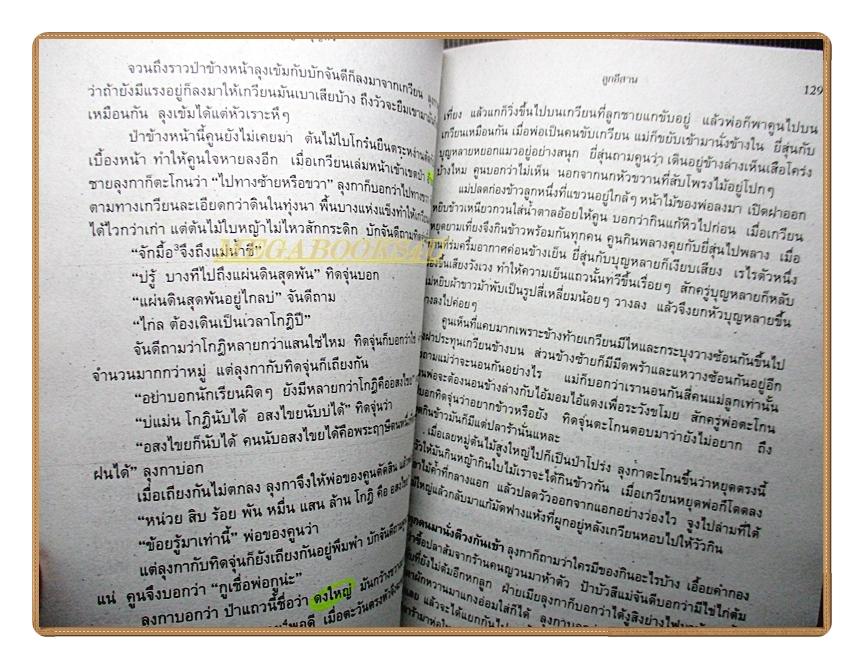 จวนถึงราวป่าข้างหน้าลุงเข้มกับบักจันดีก็ลงมาจากเกวียน
ว่าถ้ายังมีแรงอยู่ก็ลงมาให้เกวียนมันเบาเสียบ้าง ถึงวัวจะยืมเขามา
เหมือนกัน ลุงเข้มได้แต่หัวเราะหึๆ
ป่าข้างหน้านี้คูนยังไม่เคยมา ต้นไม้ใบโกร๋นยืนตระหง่าน
เบื้องหน้า ทำให้คูนใจหายลงอีก เมื่อเกวียนเล่มหน้าเข้าเขตป่า
ชายลุงกาก็ตะโกนว่า “ไปทางซ้ายหรือขวา” ลุงกาก็บอกว่าไปทาง
ตามทางเกวียนละเอียดกว่าดินในทุ่งนา พื้นบางแห่งแข็งทำให้เกวียน
ได้ไวกว่าเก่า แต่ต้นไม้ใบหญ้าไม่ไหวสักกระดิก บักจันดีถาม
“จักมื้อ³จึงถึงแม่น้ำชี”
MEGABOOKSALE
“บ่รู้ บางทีไปถึงแผ่นดินสุดพ้น” ทิดจุ่นบอก
“แผ่นดินสุดพ้นอยู่ไกลบ่” จันดีถาม
“ไกล ต้องเดินเป็นเวลาโกฏิปี”
จันดีถามว่าโกฏิหลายกว่าแสนใช่ไหม ทิดจุ่นก็บอกว่าใช่
จำนวนมากกว่าหมู่ แต่ลุงกากับทิดจุ่นก็เถียงกัน
“อย่าบอกนักเรียนผิดๆ ยังมีหลายกว่าโกฏิคืออสงไขย”
“บ่แม่น โกฏินับได้ อสงไขยนับบ่ได้” ทิดจุ่นว่า
“อสงไขยก็นับได้ คนนับอสงไขยได้คือพระฤาษีตนหนึ่ง
ฝนได้” ลุงกาบอก
เมื่อเถียงกันไม่ตกลง ลุงกาจึงให้พ่อของคูนตัดสิน
“หน่วย สิบ ร้อย พัน หมื่น แสน ล้าน โกฏิ คือ
“ข้อยรู้มาเท่านี้” พ่อของคูนว่า
แต่ลุงกากับทิดจุ่นก็ยังเถียงกันอยู่พึมพำ บักจันดีถาม
แน่ คูนจึงบอกว่า “กูเชื่อพ่อกูน่ะ”
ลุงกาบอกว่า ป่าแถวนี้ชื่อว่า ดงใหญ่ มันกว้าง
พอดี เมื่อตะวันตรงหัว
ลูกอีสาน
129
เที่ยง แล้วแกก็วิ่งขึ้นไปบนเกวียนที่ลูกชายแกขับอยู่ แล้วพ่อก็พาคูนไปบน
เกวียนเหมือนกัน เมื่อพ่อเป็นคนขับเกวียน แม่ก็ขยับเข้ามานั่งข้างใน ยี่สุ่นกับ
บุญหลายหยอกแมวอยู่อย่างสนุก ยี่สุ่นถามคูนว่า เดินอยู่ข้างล่างเห็นเสือโคร่ง
บ้างไหม คูนบอกว่าไม่เห็น นอกจากนกหัวขวานที่สับโพรงไม้อยู่โปกๆ
แม่ปลดก่องข้าวลูกหนึ่งที่แขวนอยู่ใกล้ๆ หน้าไม้ของพ่อลงมา เปิดฝาออก
หยิบข้าวเหนียวกวนใส่น้ำตาลอ้อยให้คูน บอกว่ากินแก้หิวไปก่อน เมื่อเกวียน
หยุดยามเที่ยงจึงกินข้าวพร้อมกันทุกคน คูนกินพลางคุยกับยี่สุ่นไปพลาง เมื่อ
ที่ร่มครึ้มอากาศค่อนข้างเย็น ยี่สุ่นกับบุญหลายก็เงียบเสียง เรไรตัวหนึ่ง
เสียงวังเวง ทำให้ความเย็นแถวนั้นทวีขึ้นเรื่อยๆ สักครู่บุญหลายก็หลับ
แม่หยิบผ้าขาวม้าพับเป็นรูปสี่เหลี่ยมน้อยๆ วางลง แล้วจึงยกหัวบุญหลายขึ้น
วางลงไปค่อยๆ
คูนเห็นที่แคบมากเพราะข้างท้ายเกวียนมีไหและกระบุงวางซ้อนกันขึ้นไป
ฝาประทุนเกวียนข้างบน ส่วนข้างซ้ายก็มีมีดพร้าและแหวางซ้อนกันอยู่อีก
ถามแม่ว่าจะนอนกันอย่างไร แม่ก็บอกว่าเรานอนกันสี่คนแม่ลูกเท่านั้น
พ่อจะต้องนอนข้างล่างกับไอ้มอมไอ้แดงเพื่อระวังขโมย สักครู่พ่อตะโกน
บอกทิดจุ่นว่าอยากข้าวหรือยัง ทิดจุ่นตะโกนตอบมาว่ายังไม่อยาก ถึง
กินข้าวมันก็มีแต่ปลาร้านั่นแหละ
เมื่อเลยหมู่ต้นไม้สูงใหญ่ไปก็เป็นป่าโปร่ง ลุงกาตะโกนขึ้นว่าหยุดตรงนี้
วัวให้มันกินหญ้ากินใบไม้เราจะได้กินข้าวกัน เมื่อเกวียนหยุดพ่อก็โดดลง
ไม้ค้ำที่กลางแอก แล้วปลดวัวออกจากแอกอย่างว่องไว จูงไปล่ามที่ใต้
ไม้ใหญ่แล้วกลับมาแก้มัดฟางแห้งที่ผูกอยู่หลังเกวียนหอบไปให้วัวกิน
ทุกคนมานั่งติวงกันเข้า ลุงกาก็ถามว่าใครมีของกินอะไรบ้าง เอื้อยคำกอง
ซื้อปลาส้มจากร้านคนญวนมาห้าตัว ป้าบัวสีแม่จันดีบอกว่ามีไข่ไก่ต้ม
ที่ยังไม่ต้มอีกหกลูก ฝ่ายเมียลุงกาก็บอกว่าได้งูสิงย่างไฟ
ผักหวานมาแกงอ่อมใส่ก็ได้ ลุงกาบอกว่า
เลย แล้วจะได้แยกกันไป